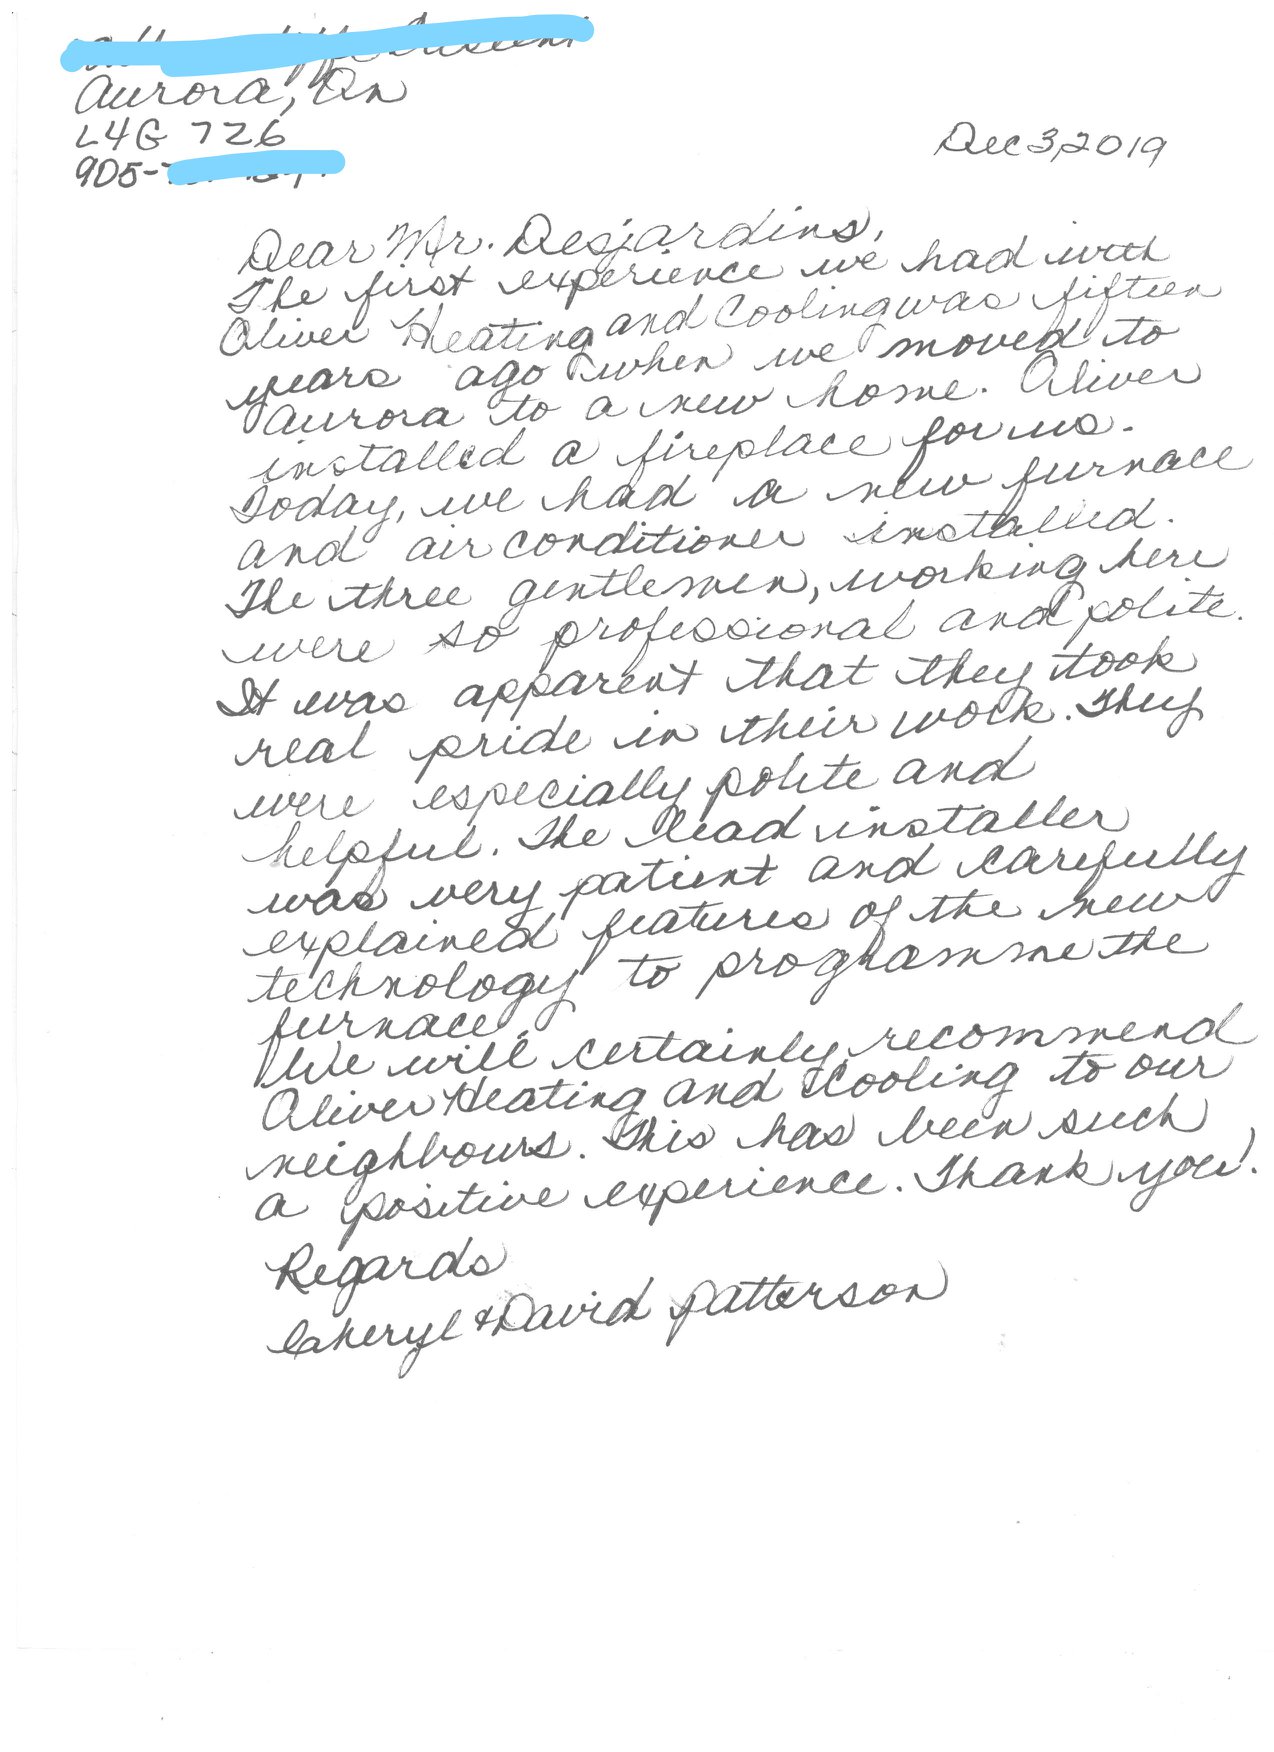 Crescent
Aurora, On
L4G 7Z6
905-
Dec 3, 2019
Dear Mr. Desjardins,
The first experience we had with
Oliver Heating and Cooling was fifteen
years ago when we moved to
Aurora to a new home. Oliver
installed a fireplace for us.
Today, we had a new furnace
and air conditioner installed.
The three gentlemen, working here
were so professional and polite.
It was apparent that they took
real pride in their work. They
were especially polite and
helpful. The lead installer
was very patient and carefully
explained features of the new
technology to programme the
furnace.
We will certainly recommend
Oliver Heating and Cooling to our
neighbours. This has been such
a positive experience. Thank you!
Regards
Cheryl & David Patterson